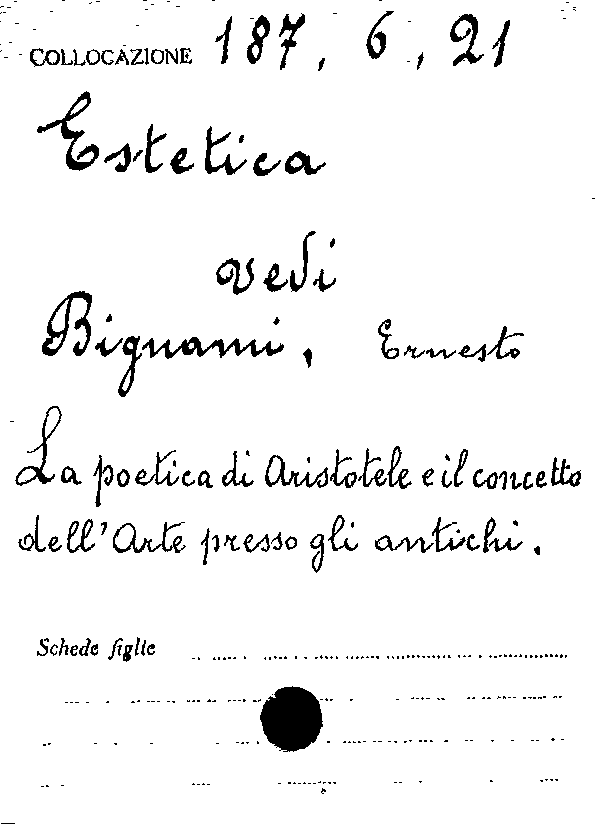 COLLOCAZIONE 187, 6, 21
Estetica
vedi
Bignami, Ernesto
La poetica di Aristotele e il concetto
dell'Arte presso gli antichi.
Schede figlie